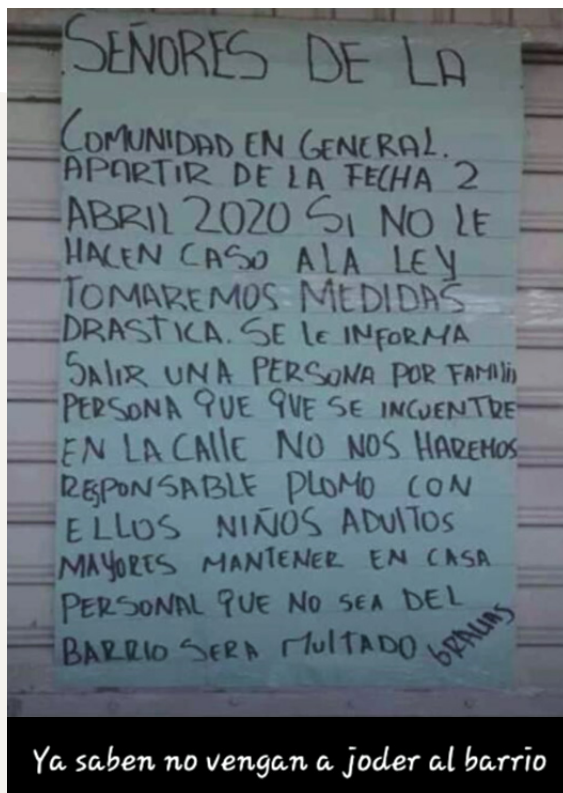 SEÑORES DE LA
COMUNIDAD EN GENERAL.
APARTIR DE LA FECHA 2
ABRIL 2020 SI NO LE
HACEN CASO A LA LEY
TOMAREMOS MEDIDAS
DRASTICA. SE LE INFORMA
SALIR UNA PERSONA POR FAMILIA
PERSONA QUE QUE SE INCUENTRE
EN LA CALLE NO NOS HAREMOS
RESPONSABLE PLOMO CON
ELLOS NIÑOS ADULTOS
MAYORES MANTENER EN CASA
PERSONAL QUE NO SEA DEL
BARRIO SERA MULTADO GRACIAS
Ya saben no vengan a joder al barrio